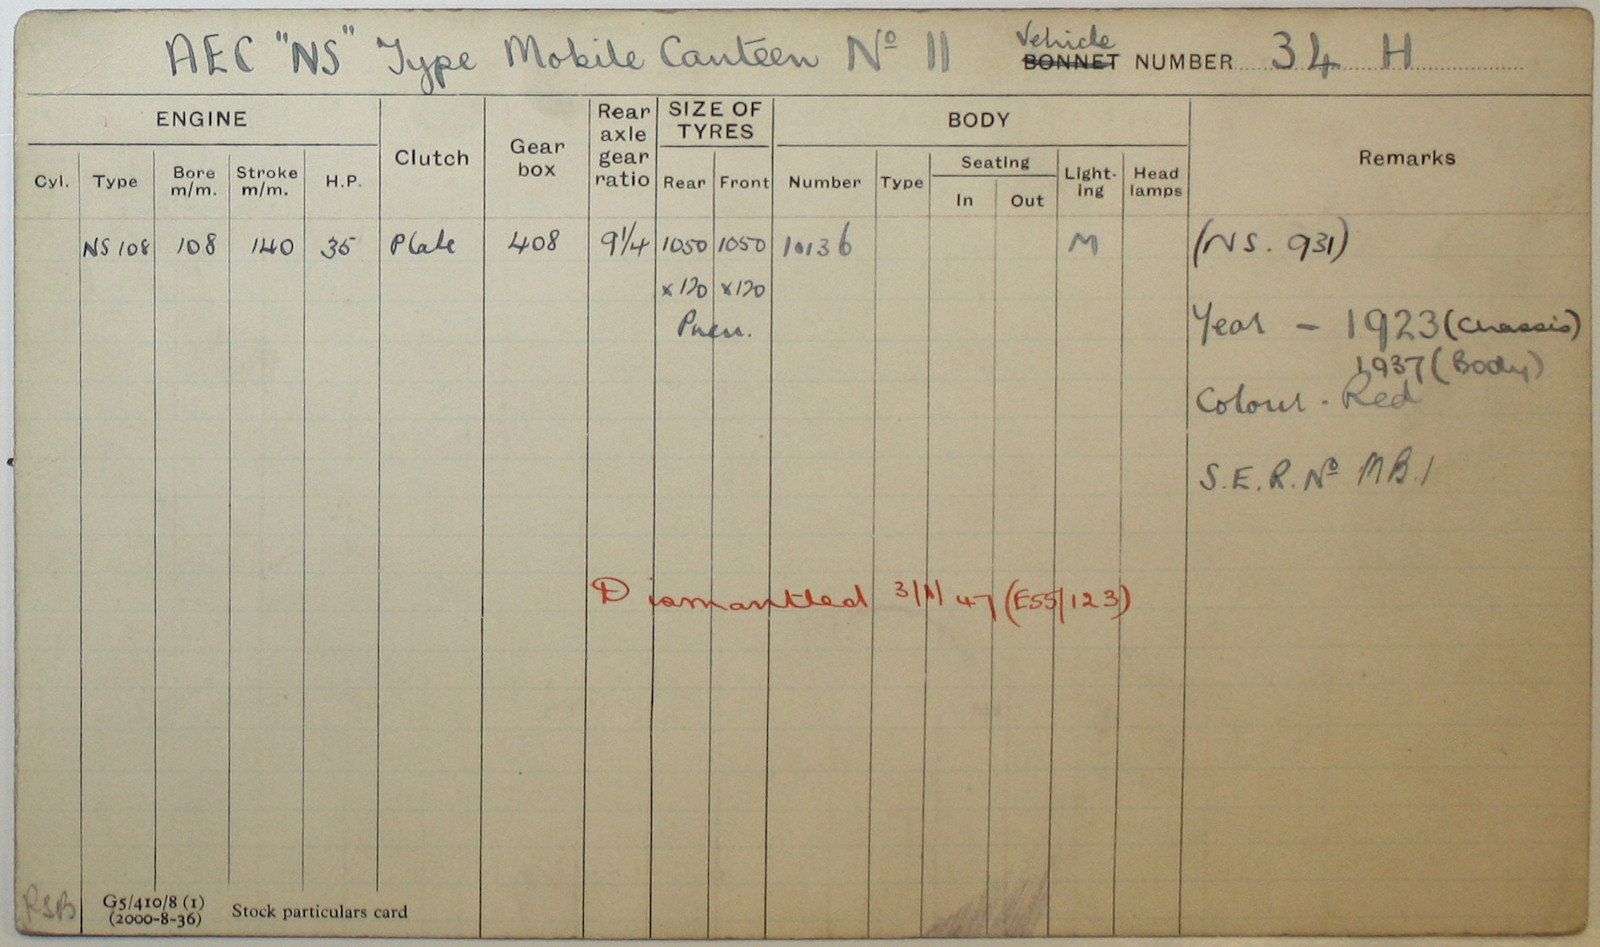 AEC "NS" Type Mobile Canteen Nº 11 Vehicle BONNET NUMBER 34 H
ENGINE Clutch Gear box Rear axle gear ratio SIZE OF TYRES BODY Remarks
Cyl. Type Bore m/m. Stroke m/m. H.P. Rear Front Number Type Seating In Out Light-ing Head lamps
NS 108 108 140 35 Plate 408 9¼ 1050 1050 10136 M (NS. 931)
x120 x120
Pneu. Year - 1923 (Chassis)
1937 (Body)
Colour - Red
S.E.R. Nº MB.1
Dismantled 47 (E55/123)
RSB G5/410/8 (1)
(2000-8-36) Stock particulars card